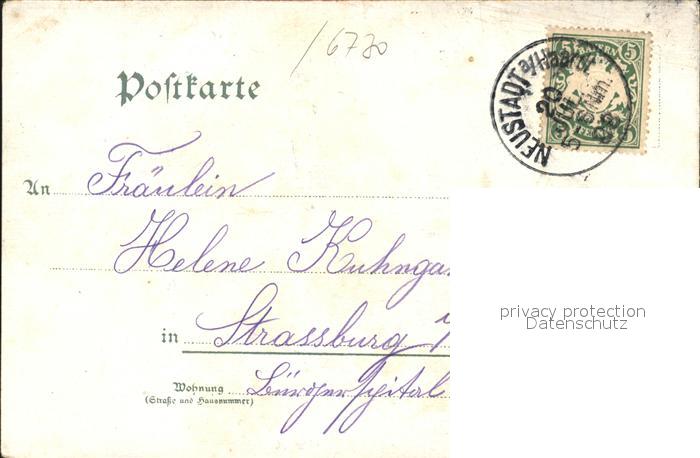 /6730
Postkarte
NEUSTADT a/Haardt
20
5
BAYERN
5 5
An Fräulein
Helene Kuhnga
in Strassburg
Wohnung Bürgerspital
(Straße und Hausnummer)
privacy protection
Datenschutz